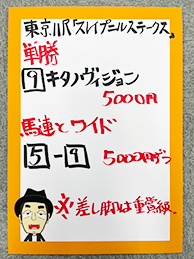 東京11R「スレイプニルステークス」
単勝
9 キタノヴィジョン
5000円
馬連とワイド
5-9 5000円ずつ
※差し脚は重賞級。